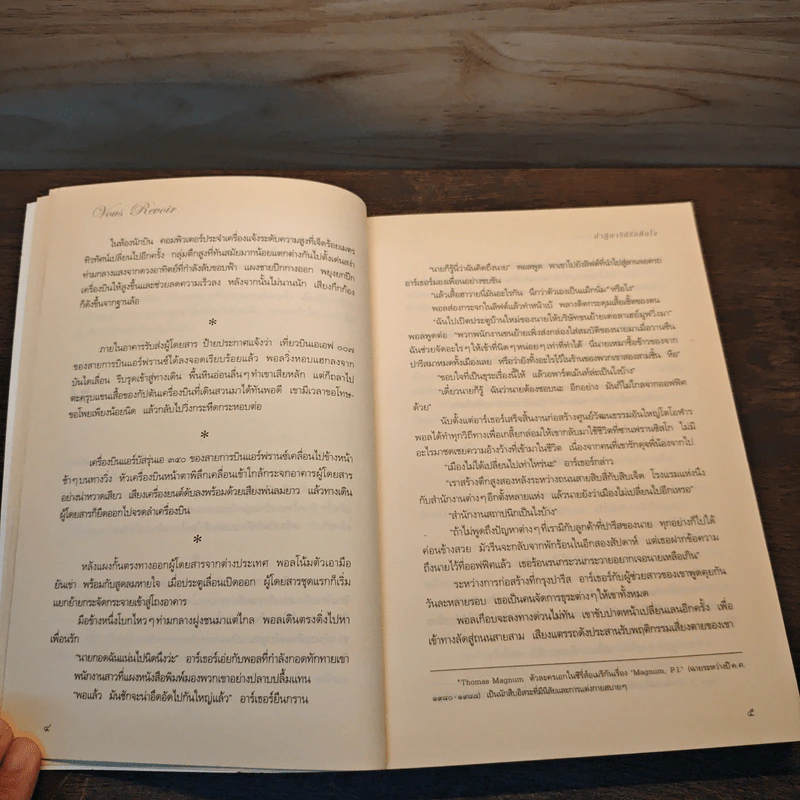 Vous Revoir
ในห้องนักบิน คอมพิวเตอร์ประจำเครื่องแจ้งระดับความสูงที่เจ็ดร้อยเมตร
ทิวทัศน์เปลี่ยนไปอีกครั้ง กลุ่มตึกสูงที่ทันสมัยมากน้อยแตกต่างกันไปตั้งเด่นสง่า
ท่ามกลางแสงจากดวงอาทิตย์ที่กำลังลับขอบฟ้า แผงชายปีกกางออก พยุงยกปีก
เครื่องบินให้สูงขึ้นและช่วยลดความเร็วลง หลังจากนั้นไม่นานนัก เสียงกึกก้อง
ก็ดังขึ้นจากฐานล้อ
*
ภายในอาคารรับส่งผู้โดยสาร ป้ายประกาศแจ้งว่า เที่ยวบินเอเอฟ ๐๐๗
ของสายการบินแอร์ฟรานซ์ได้ลงจอดเรียบร้อยแล้ว พอลวิ่งหอบแฮกลงจาก
บันไดเลื่อน รีบรุดเข้าสู่ทางเดิน พื้นหินอ่อนลื่นๆ ทำเขาเสียหลัก แต่ก็ถลาไป
ตะครุบแขนเสื้อของกัปตันเครื่องบินที่เดินสวนมาได้ทันพอดี เขามีเวลาขอโทษ-
ขอโพยเพียงน้อยนิด แล้วกลับไปวิ่งกระหืดกระหอบต่อ
*
เครื่องบินแอร์บัสรุ่นเอ ๓๔๐ ของสายการบินแอร์ฟรานซ์เคลื่อนไปข้างหน้า
ช้าๆ บนทางวิ่ง หัวเครื่องบินหน้าตาพิลึกเคลื่อนเข้าใกล้กระจกอาคารผู้โดยสาร
อย่างน่าหวาดเสียว เสียงเครื่องยนต์ดับลงพร้อมด้วยเสียงพ่นลมยาว แล้วทางเดิน
ผู้โดยสารก็ยืดออกไปจรดลำเครื่องบิน
*
หลังแผงกั้นตรงทางออกผู้โดยสารจากต่างประเทศ พอลโน้มตัวเอามือ
ยันเข่า พร้อมกับสูดลมหายใจ เมื่อประตูเลื่อนเปิดออก ผู้โดยสารชุดแรกก็เริ่ม
แยกย้ายกระจัดกระจายเข้าสู่โถงอาคาร
มือข้างหนึ่งโบกไหวๆ ท่ามกลางฝูงชนมาแต่ไกล พอลเดินตรงดิ่งไปหา
เพื่อนรัก
“นายกอดฉันแน่นไปนิดนึงว่ะ” อาร์เธอร์เอ่ยกับพอลที่กำลังกอดทักทายเขา
พนักงานสาวที่แผงหนังสือพิมพ์มองพวกเขาอย่างปลาบปลื้มแทน
“พอแล้ว มันชักจะน่าอึดอัดไปกันใหญ่แล้ว” อาร์เธอร์ยืนกราน
๔
ปาฏิหาริย์รักคืนใจ
“นายก็รู้นี่ว่าฉันคิดถึงนาย” พอลพูด พาเขาไปยังลิฟต์ที่นำไปสู่ลานจอดรถ
อาร์เธอร์มองเพื่อนอย่างขบขัน
“แล้วเสื้อฮาวายนี่มันอะไรกัน นึกว่าตัวเองเป็นแม็กนั่ม* หรือไง”
พอลส่องกระจกในลิฟต์แล้วทำหน้าเบ้ พลางติดกระดุมเสื้อเชิ้ตของตน
“ฉันไปเปิดประตูบ้านใหม่ของนายให้บริษัทขนย้ายเดอลาเฮย์มูฟวิ่งมา”
พอลพูดต่อ “พวกพนักงานขนย้ายเพิ่งส่งกล่องใส่สมบัติของนายมาเมื่อวานซืน
ฉันช่วยจัดอะไรๆ ให้เข้าที่นิดๆ หน่อยๆ เท่าที่ทำได้ นี่นายเหมาซื้อข้าวของจาก
ปารีสมาหมดทั้งเมืองเลย หรือว่ายังทิ้งอะไรไว้ในร้านของพวกเขาสองสามชิ้น หือ”
“ขอบใจที่เป็นธุระเรื่องนี้ให้ แล้วอพาร์ตเม้นท์ล่ะเป็นไงบ้าง”
“เดี๋ยวนายก็รู้ ฉันว่านายต้องชอบนะ อีกอย่าง มันก็ไม่ไกลจากออฟฟิศ
ด้วย”
นับตั้งแต่อาร์เธอร์เสร็จสิ้นงานก่อสร้างศูนย์วัฒนธรรมอันใหญ่โตโอฬาร
พอลได้ทำทุกวิถีทางเพื่อเกลี้ยกล่อมให้เขากลับมาใช้ชีวิตที่ซานฟรานซิสโก ไม่มี
อะไรมาชดเชยความอ้างว้างที่เข้ามาในชีวิต เนื่องจากคนที่เขารักดุจพี่น้องจากไป
“เมืองไม่ได้เปลี่ยนไปเท่าไหร่นะ” อาร์เธอร์กล่าว
“เราสร้างตึกสูงสองหลังระหว่างถนนสายสิบสี่กับสิบเจ็ด โรงแรมแห่งนึง
กับสำนักงานต่างๆ อีกตั้งหลายแห่ง แล้วนายยังว่าเมืองไม่เปลี่ยนไปอีกเหรอ”
“สำนักงานสถาปนิกเป็นไงบ้าง”
“ถ้าไม่พูดถึงปัญหาต่างๆ ที่เรามีกับลูกค้าที่ปารีสของนาย ทุกอย่างก็ไปได้
ค่อนข้างสวย มัวรีนจะกลับจากพักร้อนในอีกสองสัปดาห์ แต่เธอฝากข้อความ
ถึงนายไว้ที่ออฟฟิศแล้ว เธอร้อนรนกระวนกระวายอยากเจอนายเหลือเกิน”
ระหว่างการก่อสร้างที่กรุงปารีส อาร์เธอร์กับผู้ช่วยสาวของเขาพูดคุยกัน
วันละหลายรอบ เธอเป็นคนจัดการธุระต่างๆ ให้เขาทั้งหมด
พอลเกือบจะลงทางด่วนไม่ทัน เขาขับปาดหน้าเปลี่ยนเลนอีกครั้ง เพื่อ
เข้าทางลัดสู่ถนนสายสาม เสียงแตรรถดังประสานรับพฤติกรรมเสี่ยงตายของเขา
*Thomas Magnum ตัวละครเอกในซีรี่ส์อเมริกันเรื่อง ‘Magnum, P.I.’ (ฉายระหว่างปี ค.ศ.
๑๙๘๐-๑๙๘๘) เป็นนักสืบอิสระที่มีนิสัยและการแต่งกายสบายๆ
๕